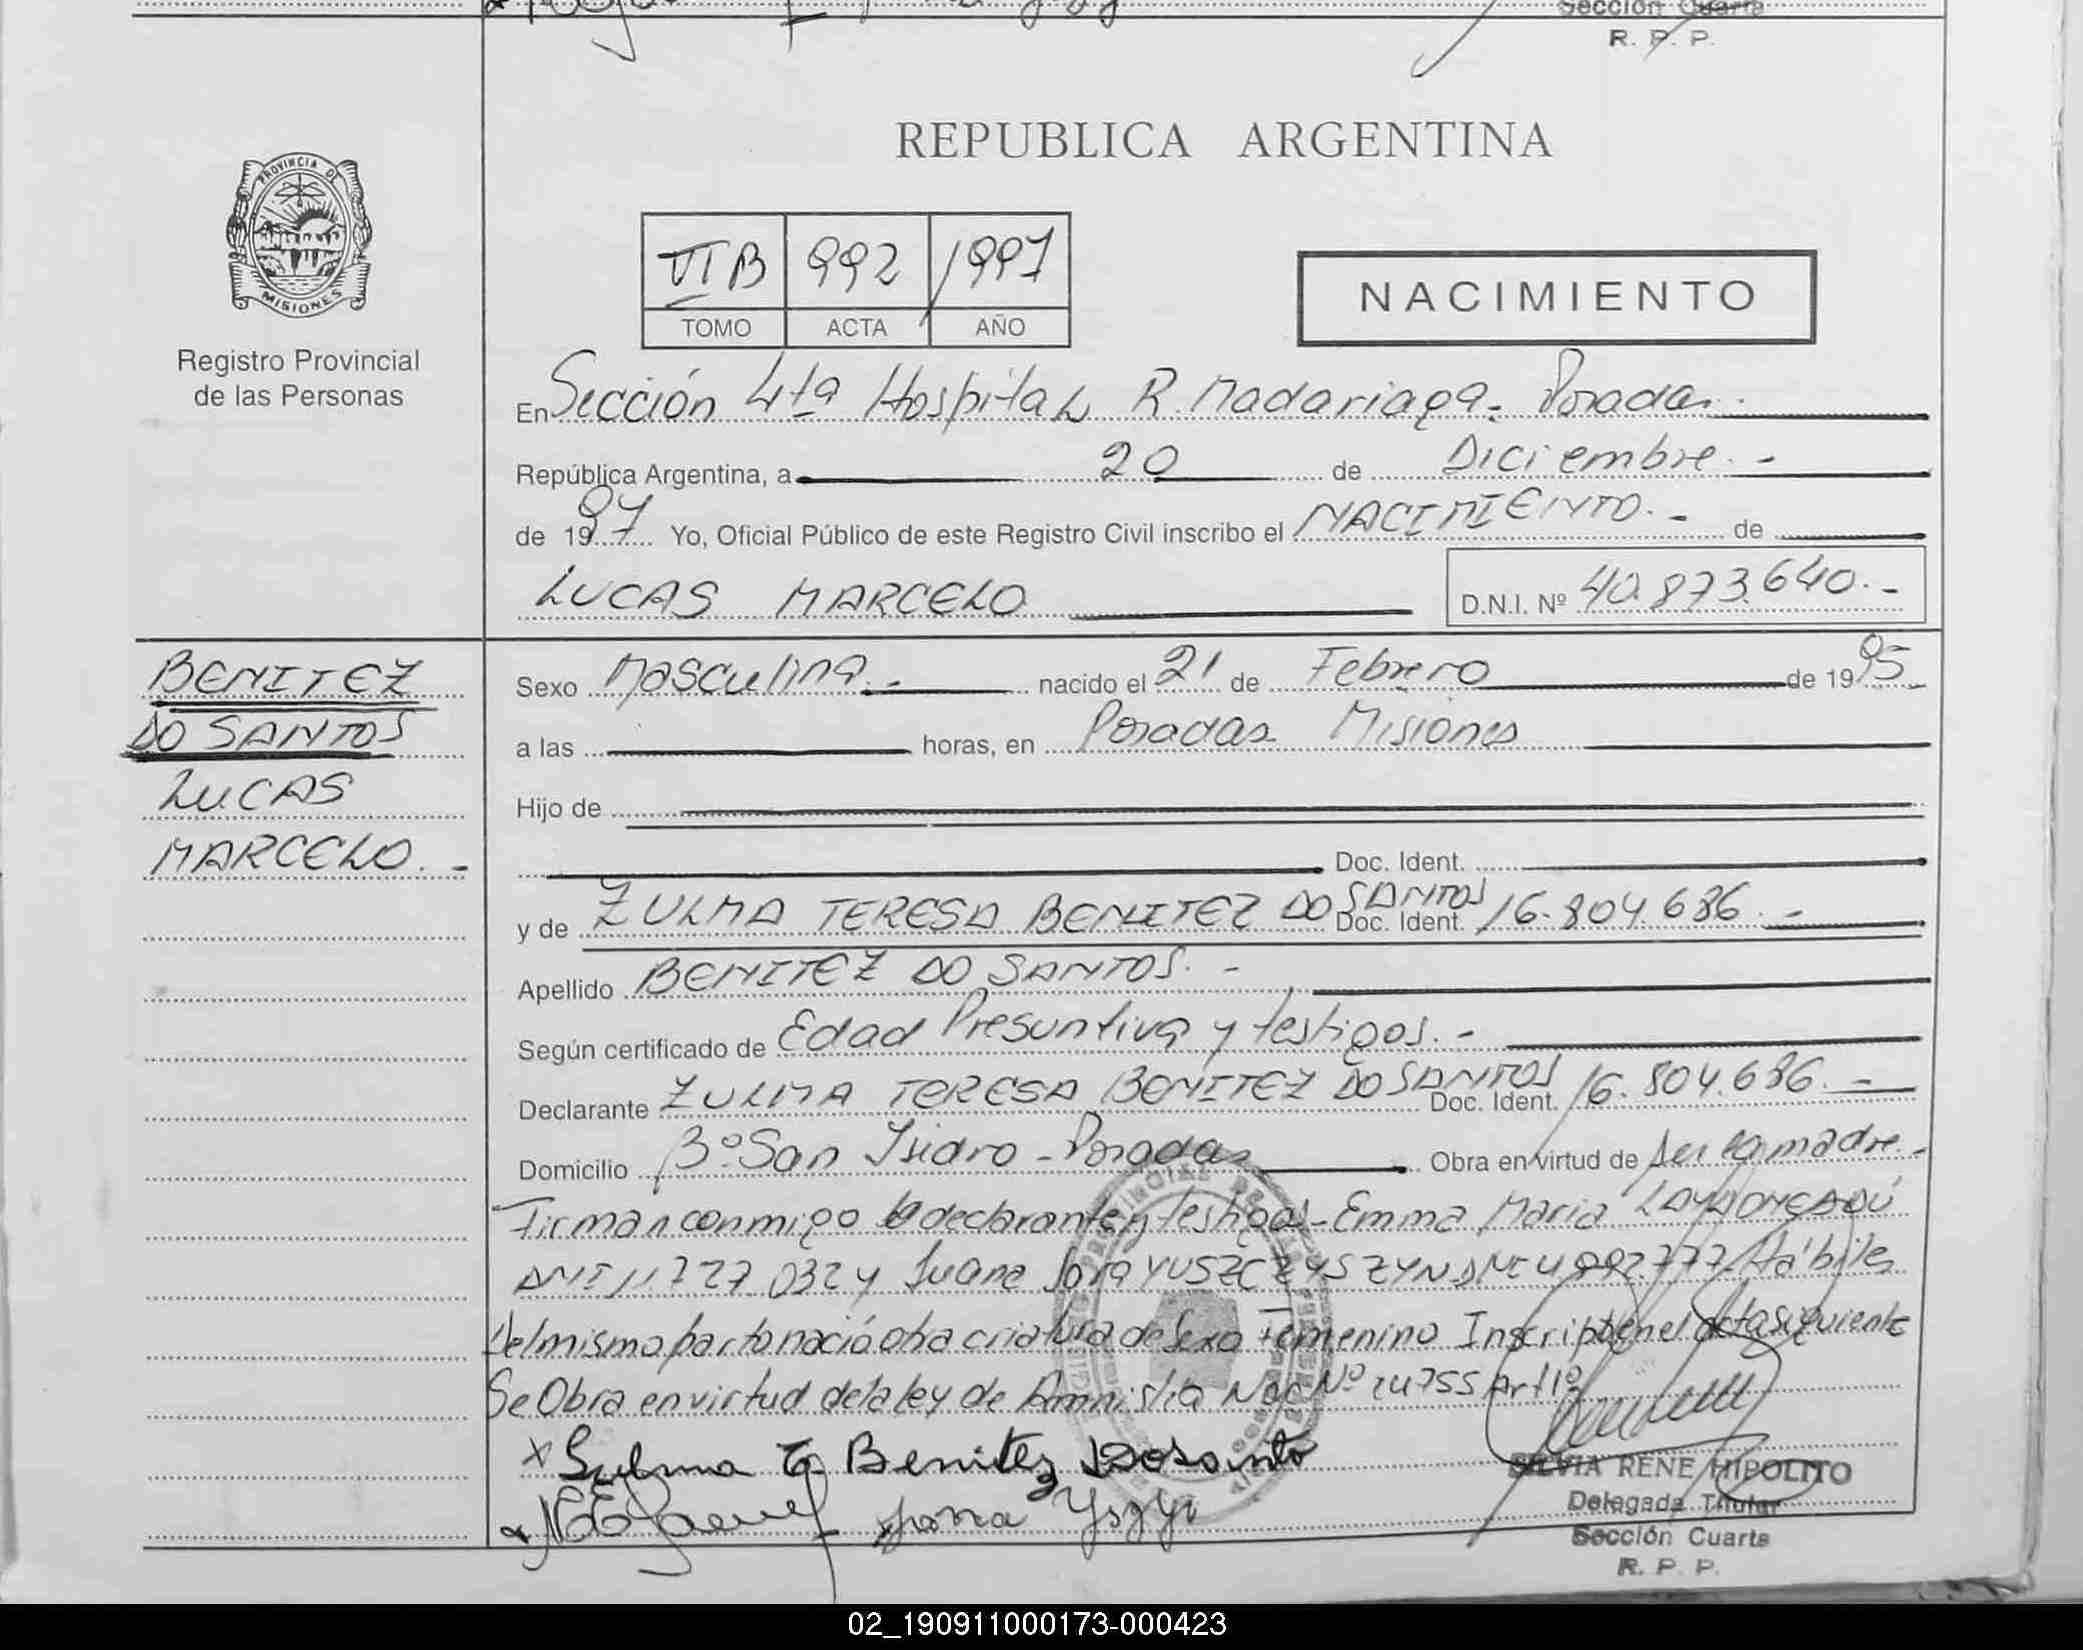 Sección Cuarta
R. P. P.
REPUBLICA ARGENTINA
PROVINCIA DE
MISIONES
Registro Provincial
de las Personas
VI B 992 1997
TOMO ACTA AÑO
NACIMIENTO
En Sección 4ta Hospital R. Madariaga - Posadas.
República Argentina, a 20 de Diciembre. -
de 1997 Yo, Oficial Público de este Registro Civil inscribo el NACIMIENTO. - de
LUCAS MARCELO D.N.I. Nº 40.873.640. -
BENITEZ
DO SANTOS
LUCAS
MARCELO. -
Sexo Masculino. - nacido el 21 de Febrero de 1995
a las horas, en Posadas Misiones
Hijo de
Doc. Ident.
y de ZULMA TERESA BENITEZ DO SANTOS Doc. Ident. 16.804.686. -
Apellido BENITEZ DO SANTOS. -
Según certificado de Edad Presuntiva y testigos. -
Declarante ZULMA TERESA BENITEZ DO SANTOS Doc. Ident. 16.804.686. -
Domicilio Bº San Isidro - Posadas Obra en virtud de ser la madre. -
Firman conmigo la declarante y testigos - Emma Maria
DNI 11.727.032 y Juana YUSZCZYSZYN DNI 4.992.777 Hábiles
Del mismo parto nació otra criatura de Sexo Femenino Inscripto en el acta siguiente
Se Obra en virtud de la ley de Amnistia Nac Nº 24755 Art 1º
x Sulma T. Benitez Dosanto
SILVIA RENE HIPOLITO
Delegada Titular
Sección Cuarta
R. P. P.
02_190911000173-000423